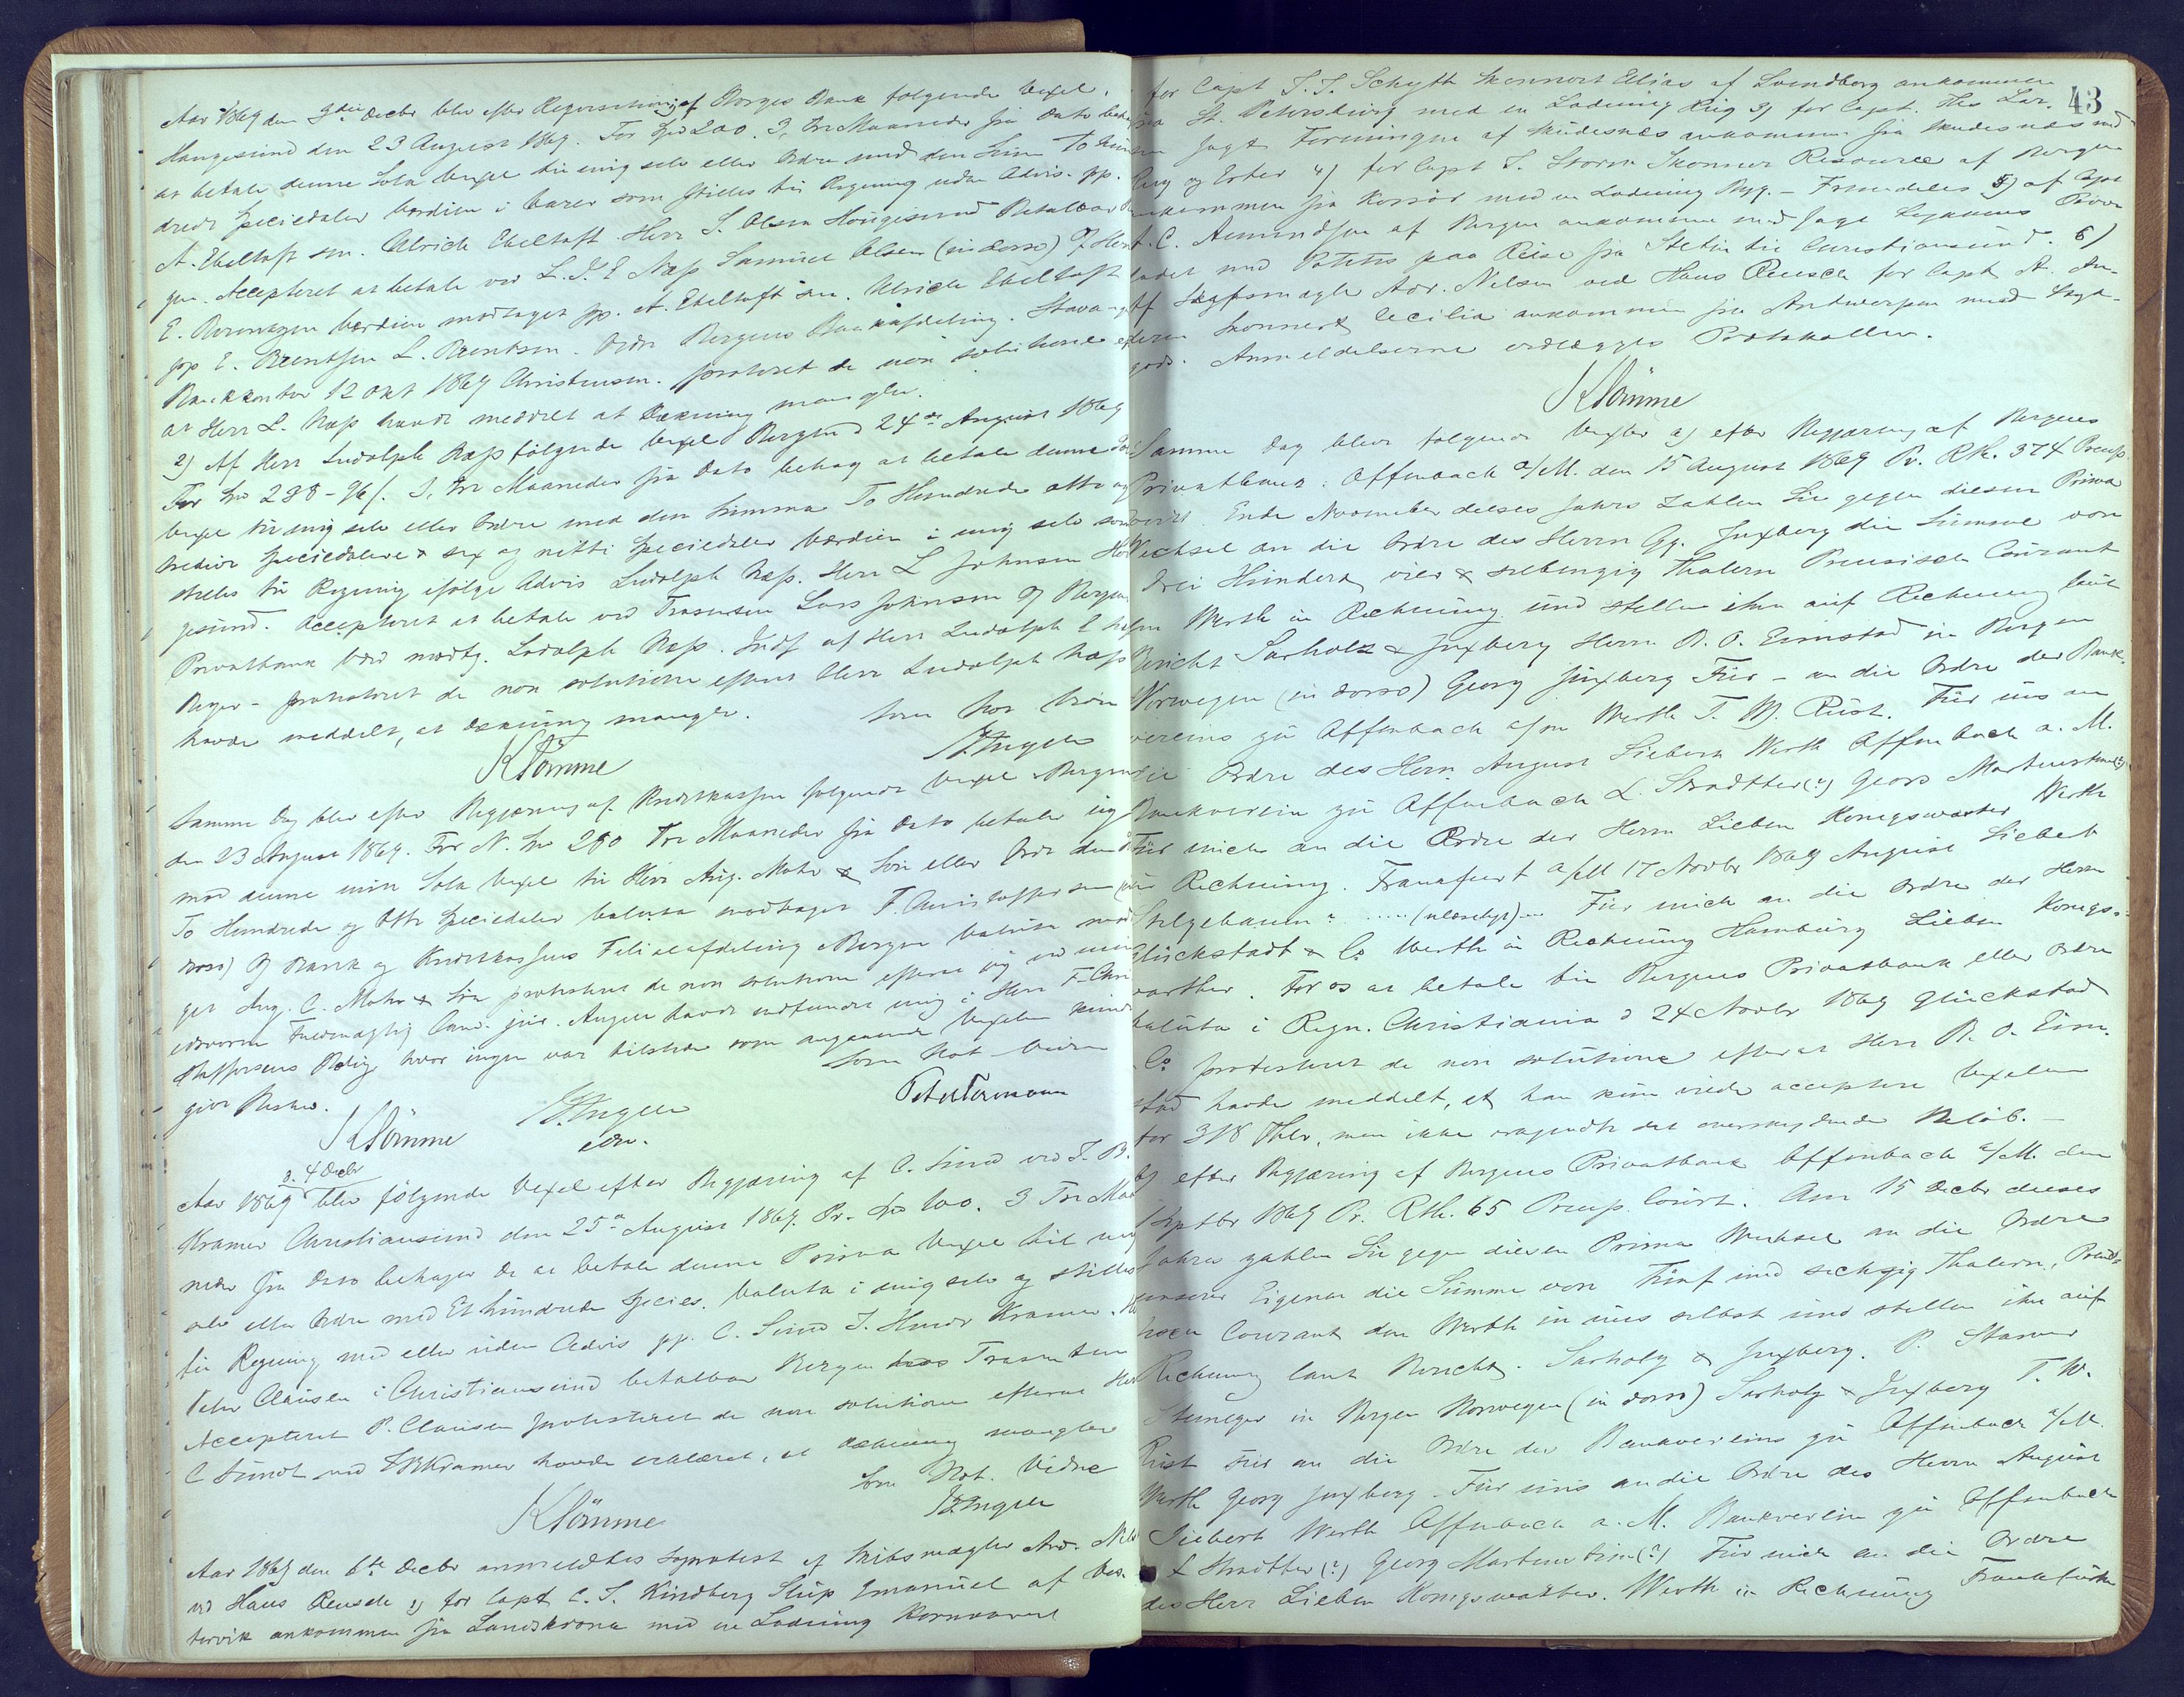 Aar 1869 den 3die Decbr blev efter Reqvisition af Norges Bank følgende Vexel.
Haugesund den 23 August 1869. For Spd 200. 3, tre Maaneder fra Dato behag
at betale denne Sola Vexel til mig selv eller Ordre med den Sum To Hun
drede Speciedaler Værdien i Varer som stilles til Regning uden Advis. pp.
A. Ebeltoft sen. Ulrich Ebeltoft Herr S. Olsen Haugesund Betalbar Ber
gen. Accepteret at betale ved L. J. E Næss Samuel Olsen (in dorso) Til Herr
E. Berentzen Værdien modtaget pp. A. Ebeltoft sen. Ulrich Ebeltoft
pp E. Berentzen L. Berentzen. Ordre Bergens Bankafdeling. Stavanger
Bankkontor 12 Okt 1869 Christensen. protesteret de non solutione efter
at Herr L. Næss havde meddelt at Dækning mangler.
2) Af Herr Ludolph Næss følgende Vexel Bergen d 24de August 1869
For Spd 288-96 s. 3, tre Maaneder fra Dato behag at betale denne Sola
Vexel til mig selv eller Ordre med den Summa To Hundrede otte og
tredive Speciedalere & sex og nitti Speciedaler Værdien i mig selv som
stilles til Regning ifølge Advis Ludolph Næss. Herr L Johnsen Hau
gesund. Accepteret at betale ved Trasenten Lars Johnsen Til Bergens
Privatbank Værd modtg. Ludolph Næss. Indf af Herr Ludolph E Næss
Berger - protesteret de non solutione efterat Herr Ludolph Næss
havde meddelt, at Dækning mangler.
Som Not Vidne
KTømme
Z. Angell
Samme Dag blev efter Begjæring af Kreditkassen følgende Vexel Bergen
den 23 August 1869. For N. Spd 280 Tre Maaneder fra Dato betaler jeg
mod denne min Sola Vexel til Herr Aug. Mohr & Søn eller Ordre den
To Hundrede og Otti Speciedaler valuta modtaget F. Christoffersen (in
dorso) Til Bank og Kreditkassens Filialafdeling i Bergen Valuta modta
get Aug. C. Mohr & Søn protesteret de non solutione efterat jeg ved min
edsvorne Fuldmægtig Cand. jur. Angell havde indfundet mig i Herr F. Chri
stoffersens Bolig, hvor ingen var tilstede som angaaende Vexelen kunde
give Besked.
Som Not Vidne
KTømme
Z. Angell
edsv.
Peter Tormann
d. 4 Decbr
Aar 1869 blev følgende Vexel efter Begjæring af C. Sund ved J. B.
Kramer Christiansund den 25de August 1869. Pr. Spd 100. 3 Tre Maa
neder fra Dato behager De at betale denne Prima Vexel til mig
selv eller Ordre med Et hundrede Species. Valuta i mig selv og stilles
til Regning med eller uden Advis pp. C. Sund J. Kramer. Hr
Peter Clausen i Christiansund betalbar Bergen hos Trasenten
Accepteret P. Clausen protesteret de non solutione efterat Herr
C Sundt ved JBKramer havde erklæret, at Dækning mangler
Som Not. Vidne
KTømme
Z. Angell
Aar 1869 den 6te Decbr anmeldtes Søprotest af Skibsmægler Adv. Nils
ved Hans Reusch 1) for Capt C. J. Kindberg Slup Emanuel af Ves
tervik ankommen fra Landskrona med en Ladning Kornvarer
43
for Capt J. J. Schyth Skonnert Elias af Svendborg ankommen
fra St. Petersburg med en Ladning Rug 3) for Capt. Hes Lar-
sen Jagt Foreningen af Skudesnæs ankommen fra Skudesnæs med
Rug og Erter 4) for Capt S. Storm Skonner Resource af Bergen
ankommen fra Korsør med en Ladning Byg. - Fremdeles 5) af Capt
A. C. Amundsen af Bergen ankommen med Jagt
ladet med Potetes paa Reise fra Stetin til Christiansund. 6)
Af Skibsmægler Adv. Nilsen ved Hans Reusch for Capt A. An-
dersen Skonnert Cecilia ankommen fra Antwerpen med Styk-
gods. Anmeldelserne vedlægges Protokollen.
KTømme
Samme Dag blev følgende Vexler a) efter Begjæring af Bergens
Privatbank: Offenbach a/M. den 15 August 1869 Pr. Rth. 374 Preuss.
Ende November dieses Jahrs zahlen Sie gegen diesen Prima
Wechsel an die Ordre des Herrn Gg. Juxberg die Summe von
Drei Hundert vier & siebenzig Thalern Preusisch Courant
den Werth in Rechnung und stellen ihn auf Rechnung laut
Bericht Sarholz & Juxberg Herrn R. O. Eimstad in Bergen
Norwegen (in dorso) Georg Juxberg Für - an die Ordre des Bank-
vereins zu Offenbach a/m Werth T. W. Rüst. Für uns an
die Ordre des Herrn August Siebert Werth Offenbach a. M.
Bankverein zu Offenbach L. Stradtter(?) Georg Martenstein(?)
Für mich an die Ordre der Herrn Lieben Königswarter Werth
in Rechnung. Frankfurt a/M 17 Novbr 1869 August Siebert
Stelzebaum? ..... (ulæseligt) ... Für mich an die Ordre der Herrn
Glückstadt & Co Werth in Rechnung Hamburg Lieben Königs-
warther. For os at betale til Bergens Privatbank eller Ordre
Valuta i Regn. Christiania d 24 Novbr 1869 Glückstad
& Co protesteret de non solutione efterat Herr R. O. Eim-
stad havde meddelt, at han kun vilde acceptere Vexelen
for 318 Thlr, men ikke angaaende det overskydende Beløb. -
b) efter Begjæring af Bergens Privatbank Offenbach a/M. den
1 Septbr 1869 Pr. Rth. 65 Preuss. Court. Am 15 Decbr dieses
Jahres zahlen Sie gegen diesen Prima Wechsel an die Ordre
unserer Eigenen die Summe von Fünf und sechzig Thalern, Preus-
sisch Courant den Werth in uns selbst und stellen ihn auf
Rechnung laut Bericht. Sarholz & Juxberg. P. Stamer
Stuneger in Bergen Norwegen (in dorso) Sarholz & Juxberg T. W.
Rüst Für an die Ordre des Bankvereins zu Offenbach a/M.
Werth Georg Juxberg. Für uns an die Ordre des Herrn August
Siebert Werth Offenbach a. M. Bankverein zu Offenbach
L Stradtter(?) Georg Martenstein(?) Für mich an die Ordre
des Herr Lieben Königswarther. Werth in Rechnung Frankfurth